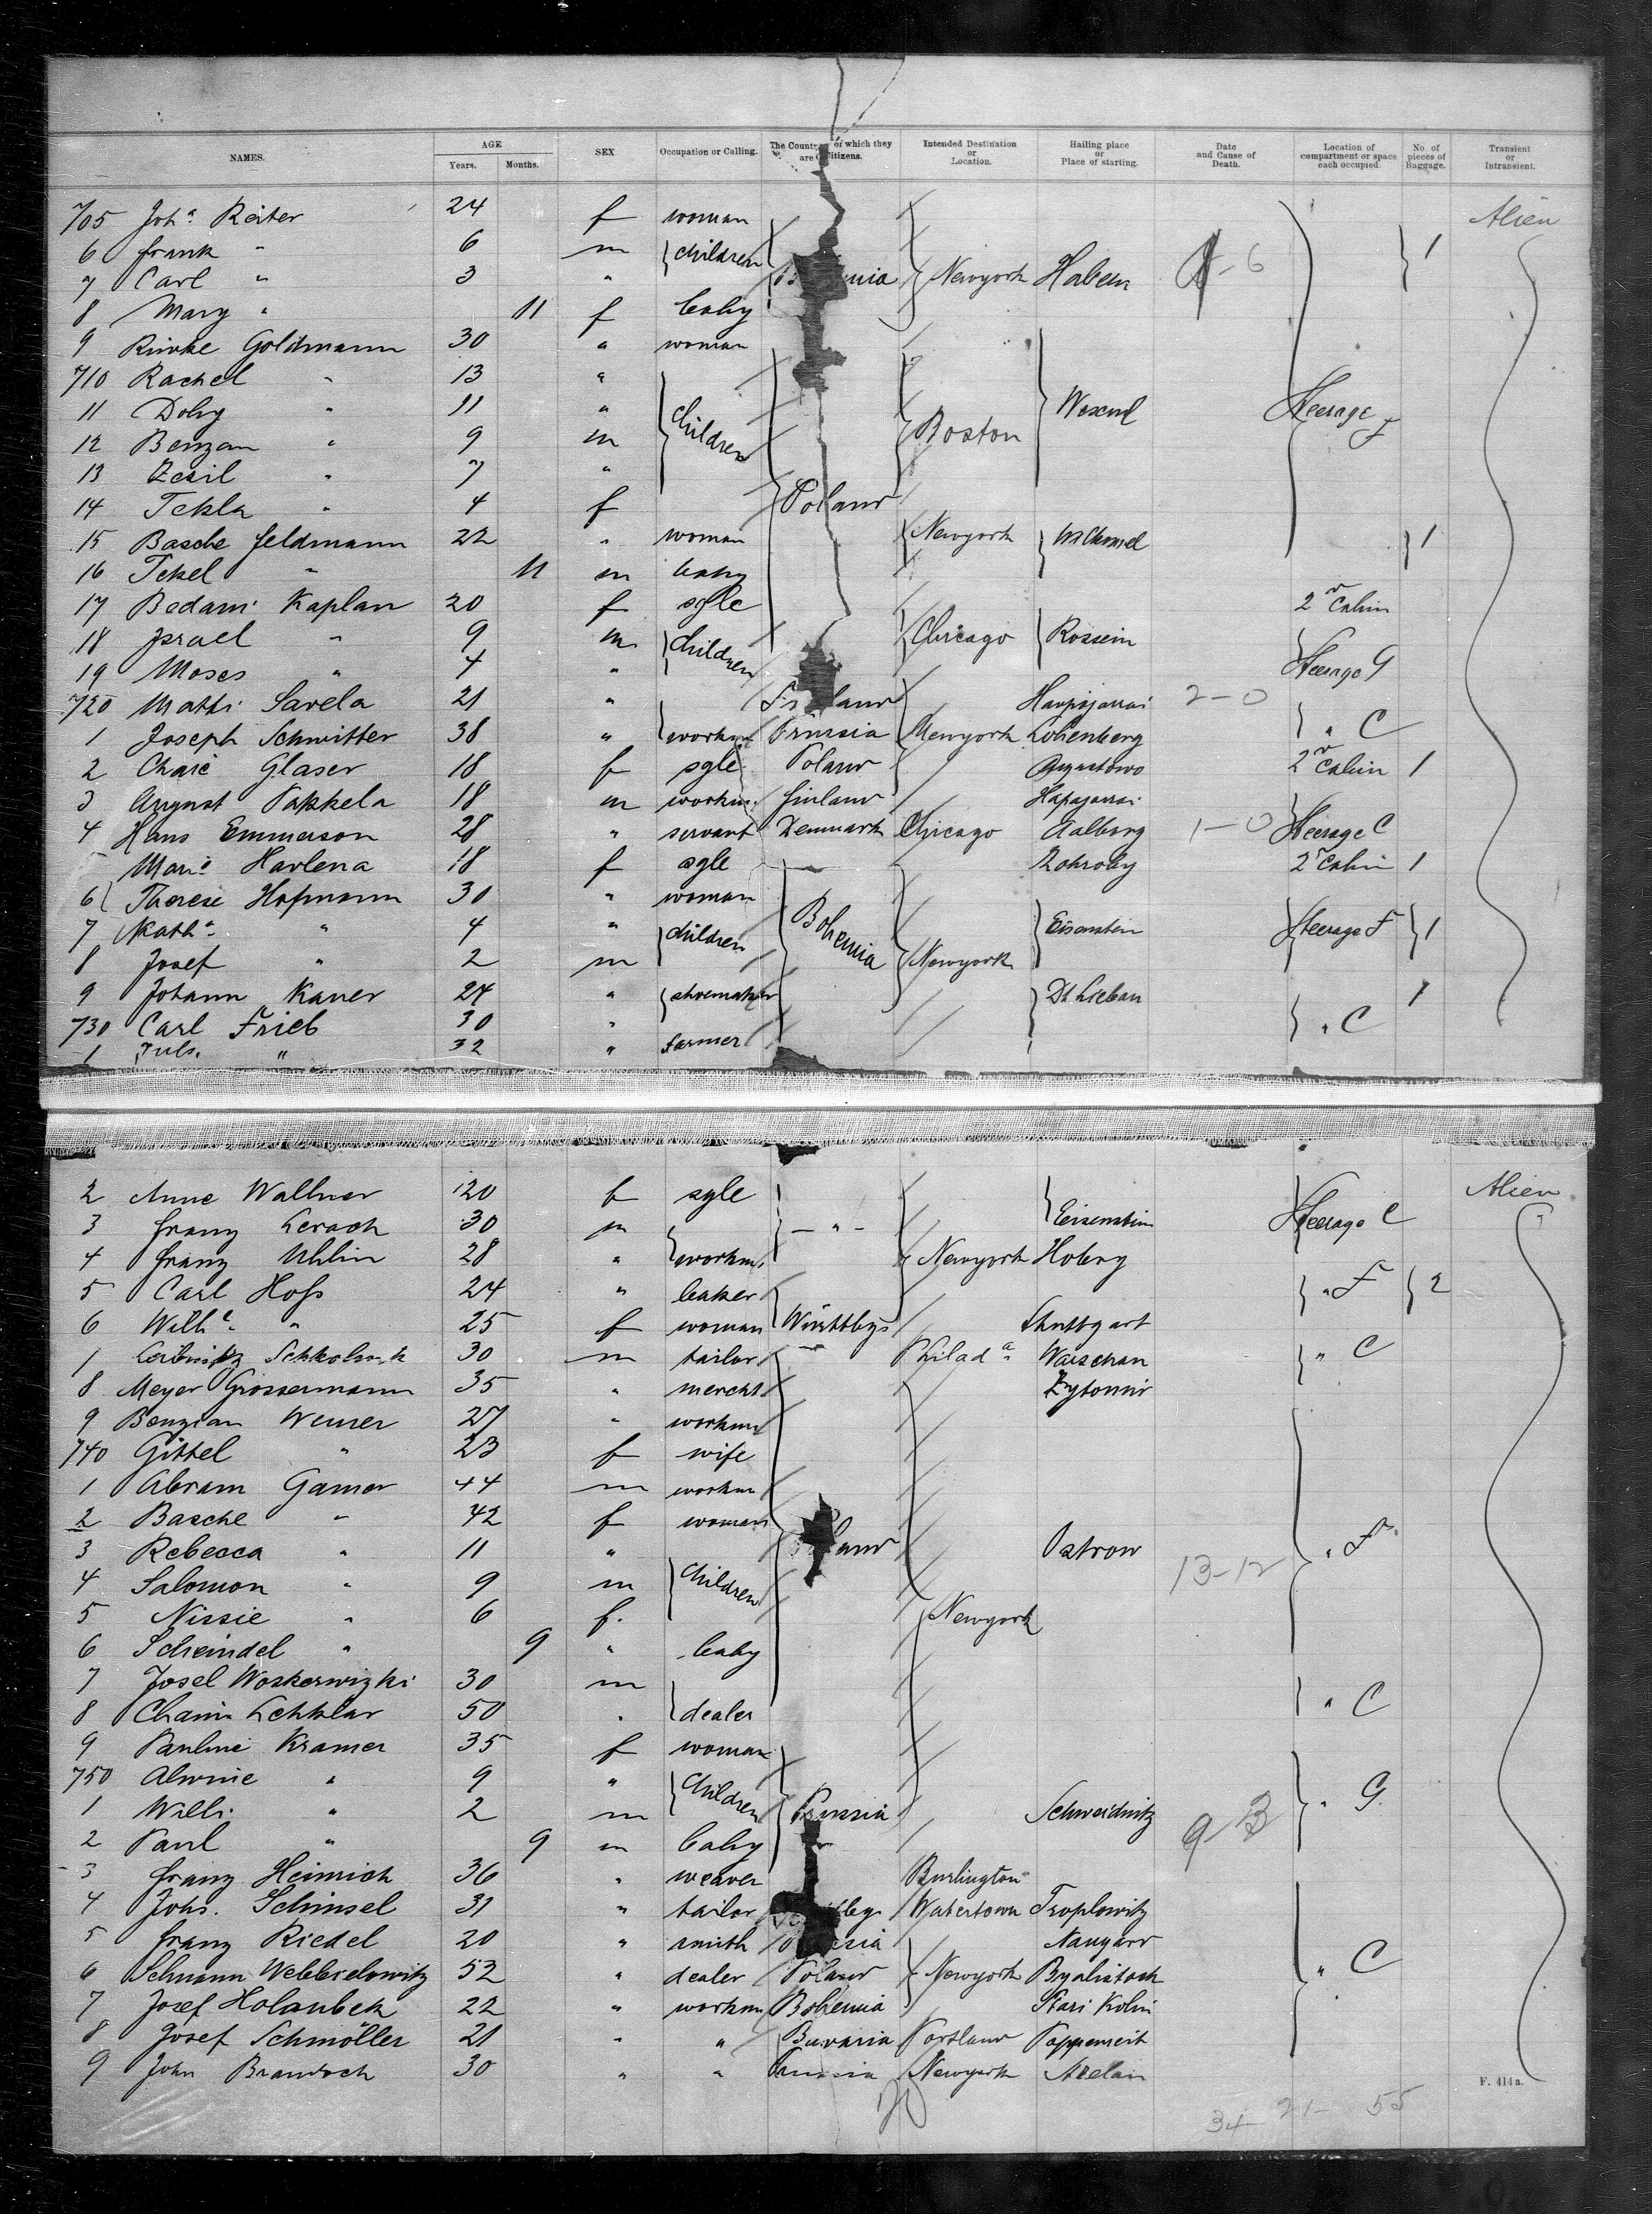 NAMES. AGE Years. Months. SEX Occupation or Calling. The Country of which they are Citizens. Intended Destination or Location. Hailing place or Place of starting. Date and Cause of Death. Location of compartment or space each occupied. No. of pieces of Baggage. Transient or Intransient.
705 Joh.a Reiter 24 f woman Alien
6 Frank " 6 m children 1
7 Carl " 3 " Newyork Habern
8 Mary " 11 f baby
9 Rivke Goldmann 30 " woman
710 Rachel " 13 "
11 Doby " 11 " children Steerage F
12 Benzan " 9 m Boston
13 Zesil " 7 "
14 Tekla " 4 f Poland
15 Basche Feldmann 22 " woman Newyork 1
16 Tekel " 11 m baby
17 Bedami Kaplan 20 f sgle 2nd Cabin
18 Israel " 9 m children Chicago Rossein
19 Moses " 4 " Steerage G
720 Matti Savela 21 " 2-0
1 Joseph Schmitter 38 " workm Prussia Newyork Lohenberg " C
2 Chaie Glaser 18 f sgle Poland Augustowo 2nd Cabin 1
3 August Pakkela 18 m workm. Finland
4 Hans Emmerson 28 " servant Denmark Chicago Aalborg 1-0 Steerage C
5 Marie Havlena 18 f sgle 2nd Cabin 1
6 Therese Hofmann 30 " woman
7 Kath.a " 4 " children Bohemia Eisenstein Steerage F 1
8 Josef " 2 m Newyork
9 Johann Kaner 24 " shoemaker Dt. Lieban 1
730 Carl Frieb 30 " " C
1 Juls. " 32 " farmer
2 Anne Wallner 20 f sgle Alien
3 Franz Lerach 30 m - " - Eisenstein Steerage C
4 Franz Uhlin 28 " workm. Newyork
5 Carl Hoss 24 " baker " F 2
6 Wilh.e " 25 f woman Württbg. Stuttgart
7 30 m tailor Philad.a Warschau " C
8 Meyer Grossermann 35 " mercht. Zytomir
9 Benzian Weiner 27 " workm
740 Gittel " 23 f wife
1 Abram Gamer 44 m workm
2 Basche " 42 f woman
3 Rebecca " 11 " Ostrow " F
4 Salomon " 9 m children 13-12
5 Nissie " 6 f. Newyork
6 Scheindel " 9 " baby
7 Josel Woskerwizki 30 m " C
8 Chaim 50 " dealer
9 Pauline Kramer 35 f woman
750 Alwine " 9 " children " G
1 Willi " 2 m Prussia Schweidnitz 9-3
2 Paul " 9 m baby
3 Franz Heinrich 36 " weaver Burlington
4 Johs. Schinsel 31 " tailor Watertown Troplowitz
5 Franz Riedel 20 " smith Naugard
6 52 " dealer Poland Newyork Byalistock " C
7 Josef Holaubek 22 " workm Bohemia Stari Kolin
8 Josef Schmöller 21 " " Bavaria Portland
9 John 30 " " Newyork
F. 414a.
34- 21- 55